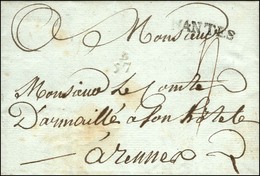 Monsieur
NANTES
Monsieur Le Comte
D'armaillé a son hotel
a rennes